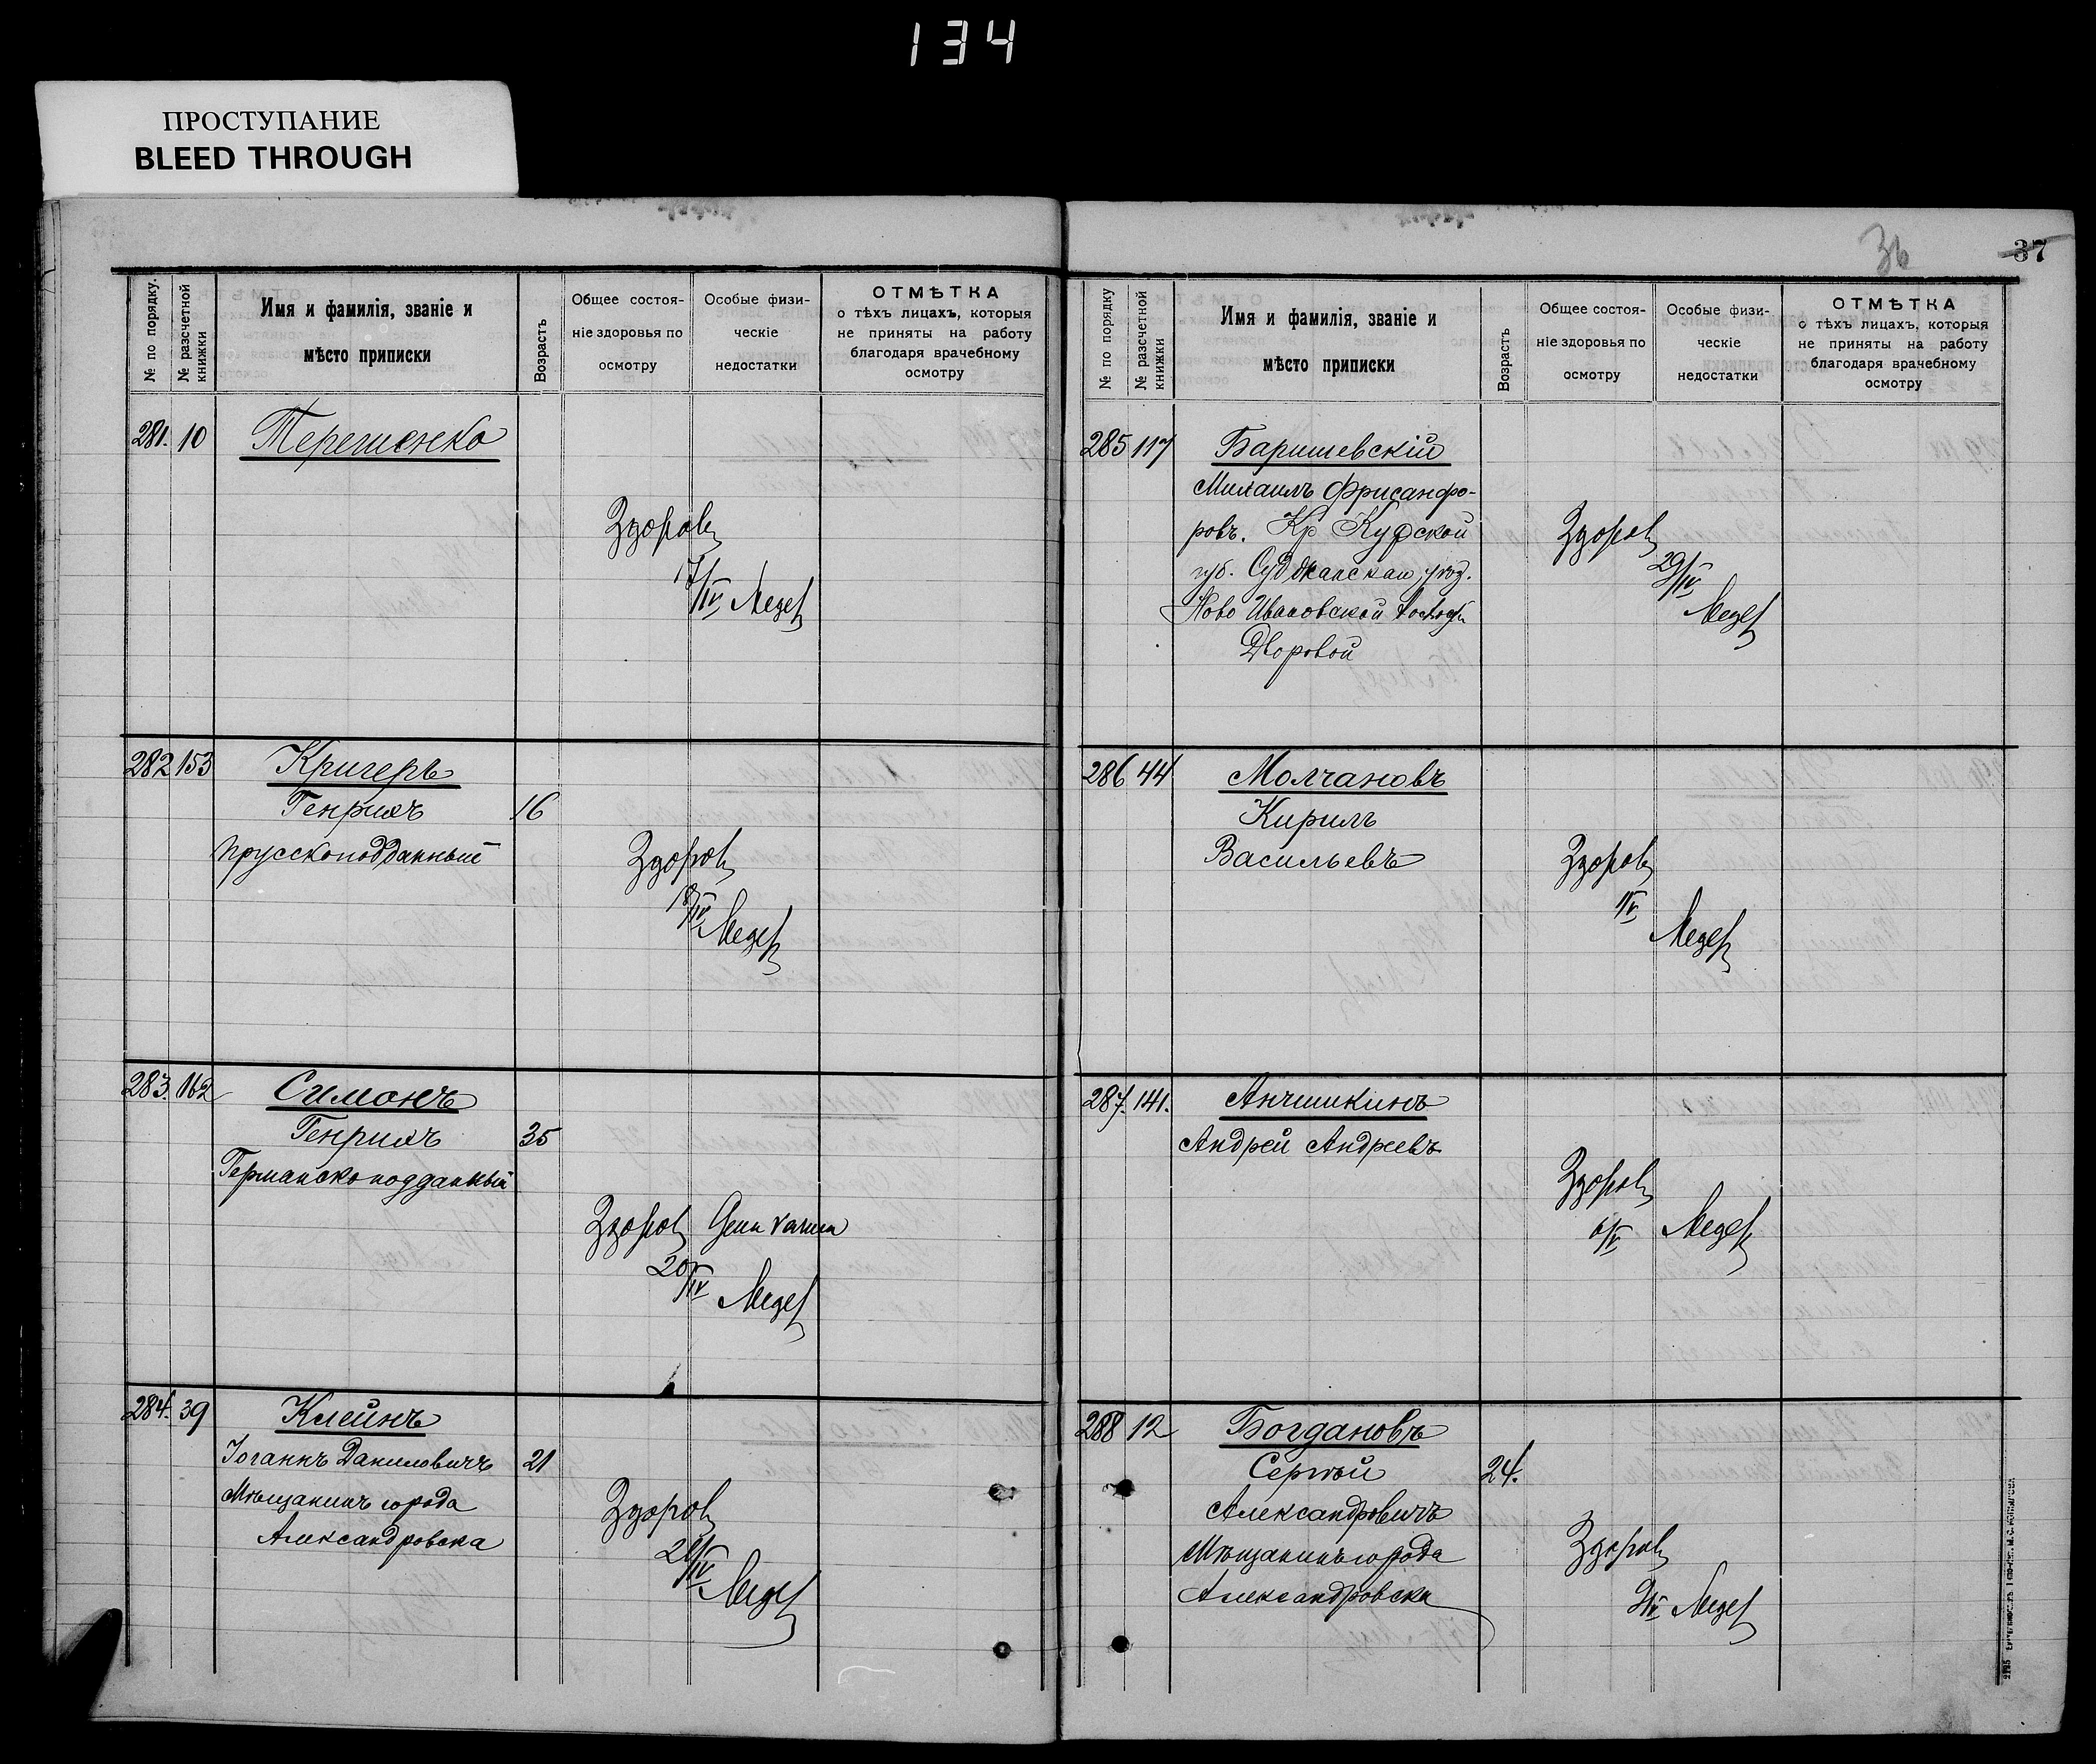 134
ПРОСТУПАНИЕ
BLEED THROUGH
№ по порядку.
№ разсчетной книжки
Имя и фамилія, званіе и
мѣсто приписки
Возрастъ
Общее состоя-
ніе здоровья по
осмотру
Особые физи-
ческіе
недостатки
ОТМѢТКА
о тѣхъ лицахъ, которыя
не приняты на работу
благодаря врачебному
осмотру
281. 10 Терешенко
Здоровъ
17/IV
282 153 Кригеръ
Генрихъ 16
прусскоподданный
Здоровъ
18/IV
283. 162 Симонъ
Генрихъ 35
Германскоподданный
Здоровъ
20/IV
284. 39 Клейнъ
Іоганнъ Даниловичъ 21
Мѣщанинъ города
Александровска
Здоровъ
21/IV
36 37
№ по порядку
№ разсчетной книжки
Имя и фамилія, званіе и
мѣсто приписки
Возрастъ
Общее состоя-
ніе здоровья по
осмотру
Особые физи-
ческіе
недостатки
ОТМѢТКА
о тѣхъ лицахъ, которыя
не приняты на работу
благодаря врачебному
осмотру
285 117 Баришевскій
Михаилъ
ровъ. Кр
губ.
Ново Ивановской
Дворовой
Здоровъ
29/IV
286 44 Молчановъ
Кирилъ
Васильевъ
Здоровъ
1/V
287. 141. Анчишкинъ
Андрей Андреевъ
Здоровъ
6/V
288 12 Богдановъ
Сергѣй 24.
Александровичъ
Мѣщанинъ города
Александровска
Здоровъ